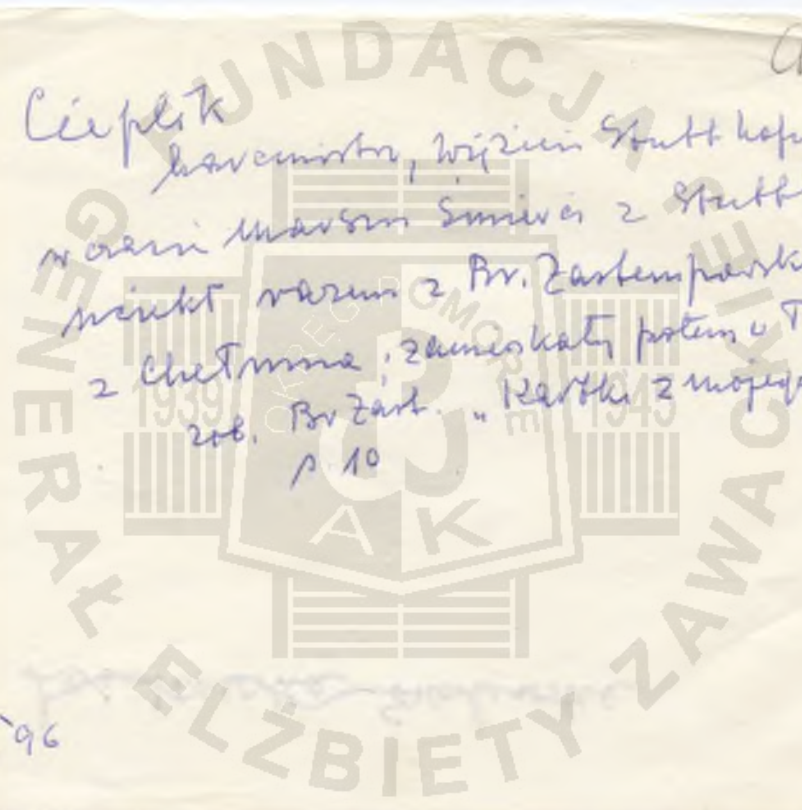 Cieplik
harcmistrz, więzień Stutthofu
w czasie Marszu Śmierci z Stutth
uciekł razem z Br. Zastempowsk
z Chełmna, zamieszkały potem w T
zob. Br Zast. "Kartki z mojego
s. 10
96
FUNDACJA GENERAŁ ELŻBIETY ZAWACKIEJ
OKRĘG POMORZE
1939 1945
AK